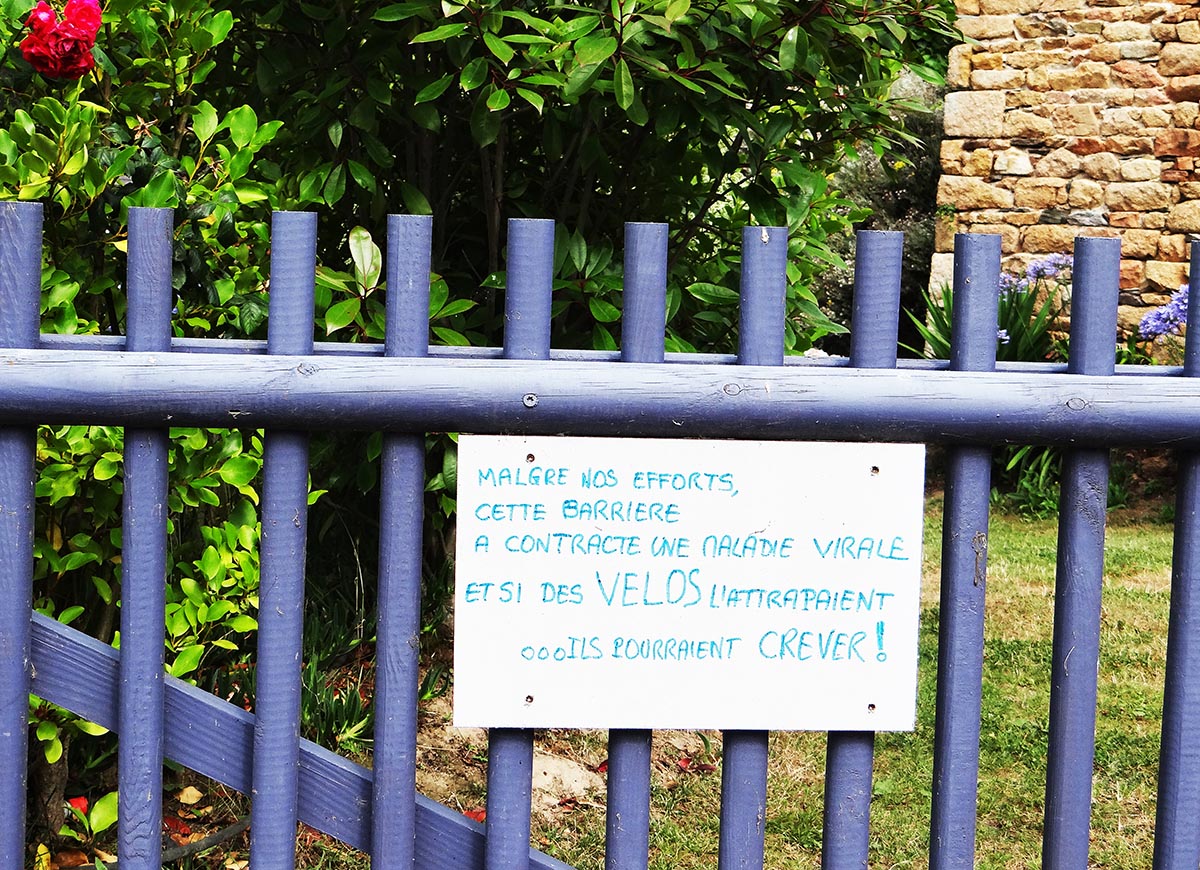 MALGRE NOS EFFORTS,
CETTE BARRIERE
A CONTRACTE UNE MALADIE VIRALE
ET SI DES VELOS L'ATTRAPAIENT
...ILS POURRAIENT CREVER!